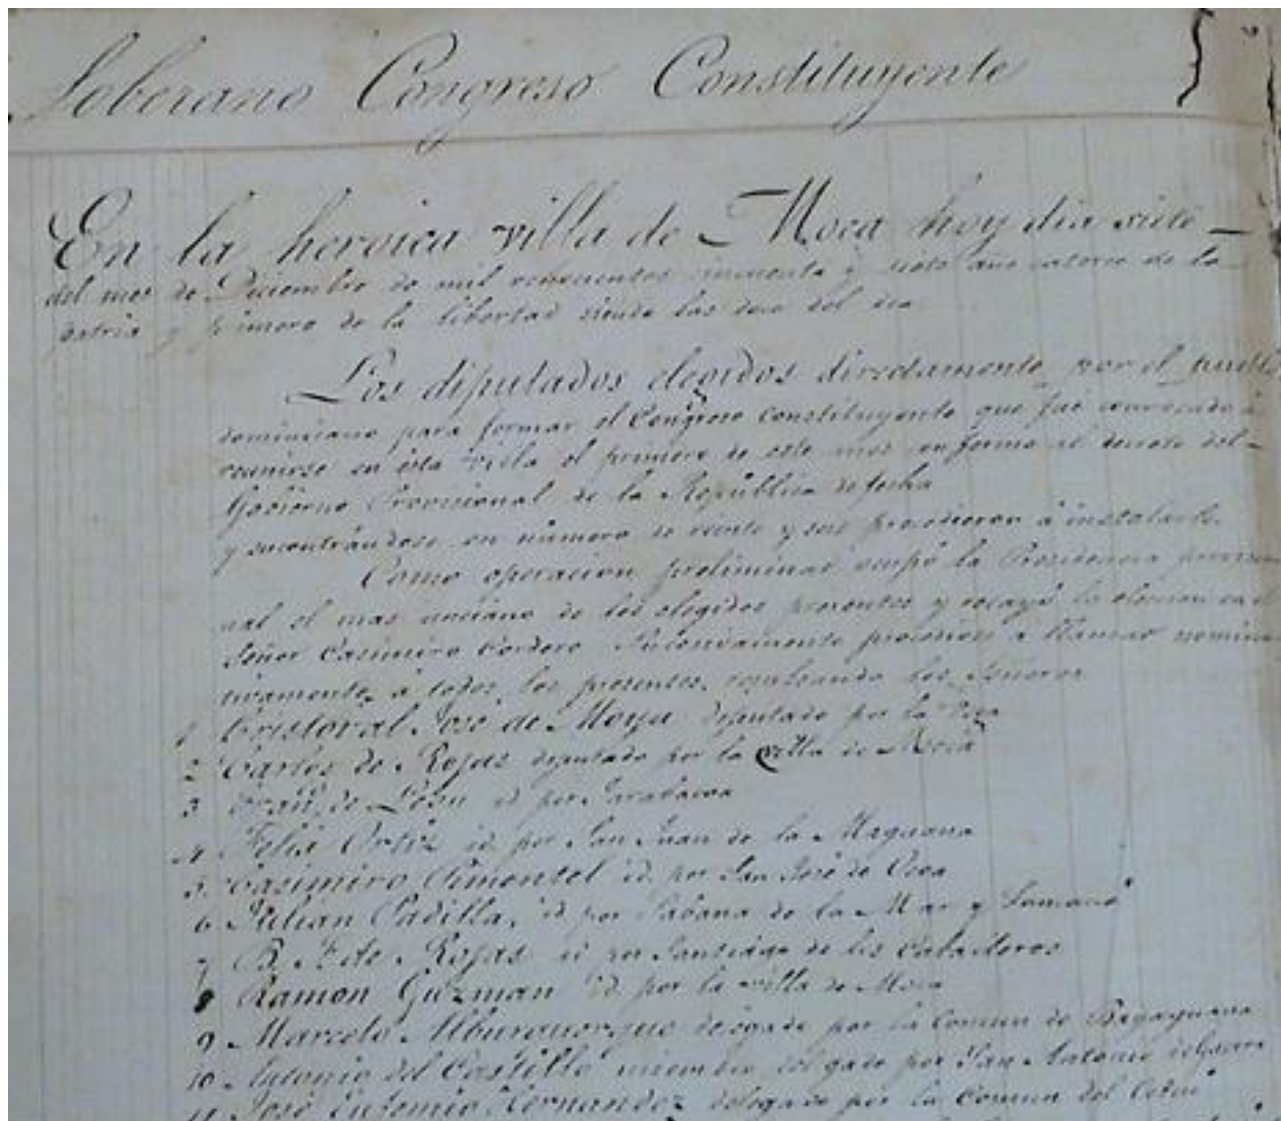 Soberano Congreso Constituyente
En la heroica villa de Moca hoy dia siete
del mes de Diciembre de mil ochocientos cincuenta y siete año catorce de la
patria y primero de la libertad siendo las doce del dia
Los diputados elegidos directamente por el pueblo
dominicano para formar el Congreso Constituyente que fué convocado á
reunirse en ésta villa el primero de este mes conforme al decreto del
Gobierno Provisional de la República de fecha
y encontrándose en número de veinte y seis procedieron á instalarle.
Como operacion preliminar ocupó la Presidencia
el mas anciano de los elegidos presentes y recayó la eleccion en el
Señor Casimiro Cordero. procedióse a llamar
á todos los presentes, resultando los Señores
1 Cristoval José de Moya diputado por la Vega
2 Carlos de Rojas diputado por la villa de Moca
3 de Leon id por Jarabacoa
4 Felix Ortiz id por San Juan de la Maguana
5 Casimiro Pimentel id. por San José de Ocoa
6 Julian Padilla, id por Sabana de la Mar y Samaná
7 B. F. de Rojas id por Santiago de los Caballeros
8 Ramon Guzman id. por la villa de Moca
9 Marcelo Alburquerque delegado por la Comun de Bayaguana
10 Antonio del Castillo miembro delegado por San Antonio
11 José Eufemio Hernandez delegado por la Comun del Cotuí